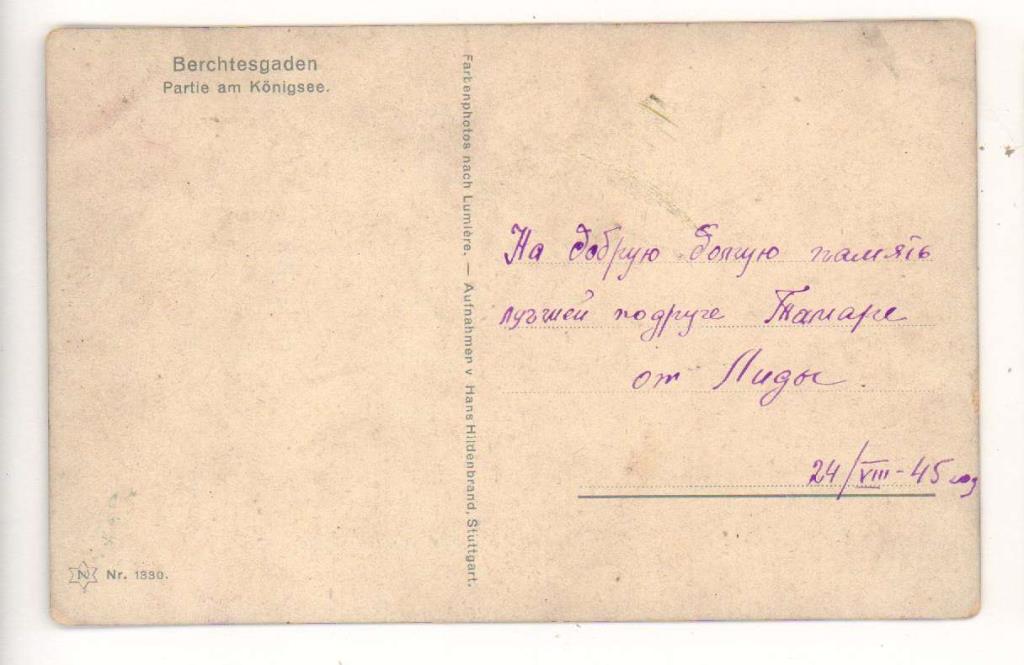 Berchtesgaden
Partie am Königsee.
Farbenphotos nach Lumière. — Aufnahmen v Hans Hildenbrand, Stuttgart.
На добрую долгую память
лучшей подруге Тамаре
от Лиды
24/VIII-45 год
N Nr. 1330.